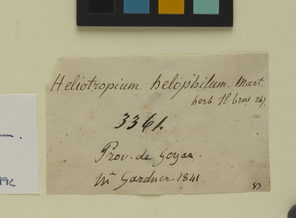 Heliotropium helophilum. Mart.
herb. fl. bras. 267.
3361.
Prov. de Goyaz.
Mr Gardner 1841.